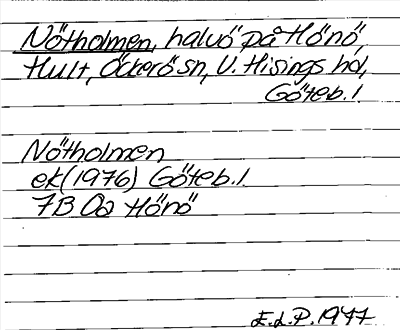 Nötholmen, halvö på Hönö,
Hult, Öckerö sn, V. Hisings hd,
Göteb. l
Nötholmen
ek (1976) Göteb. l
7B 0a Hönö
E.L.P. 1977